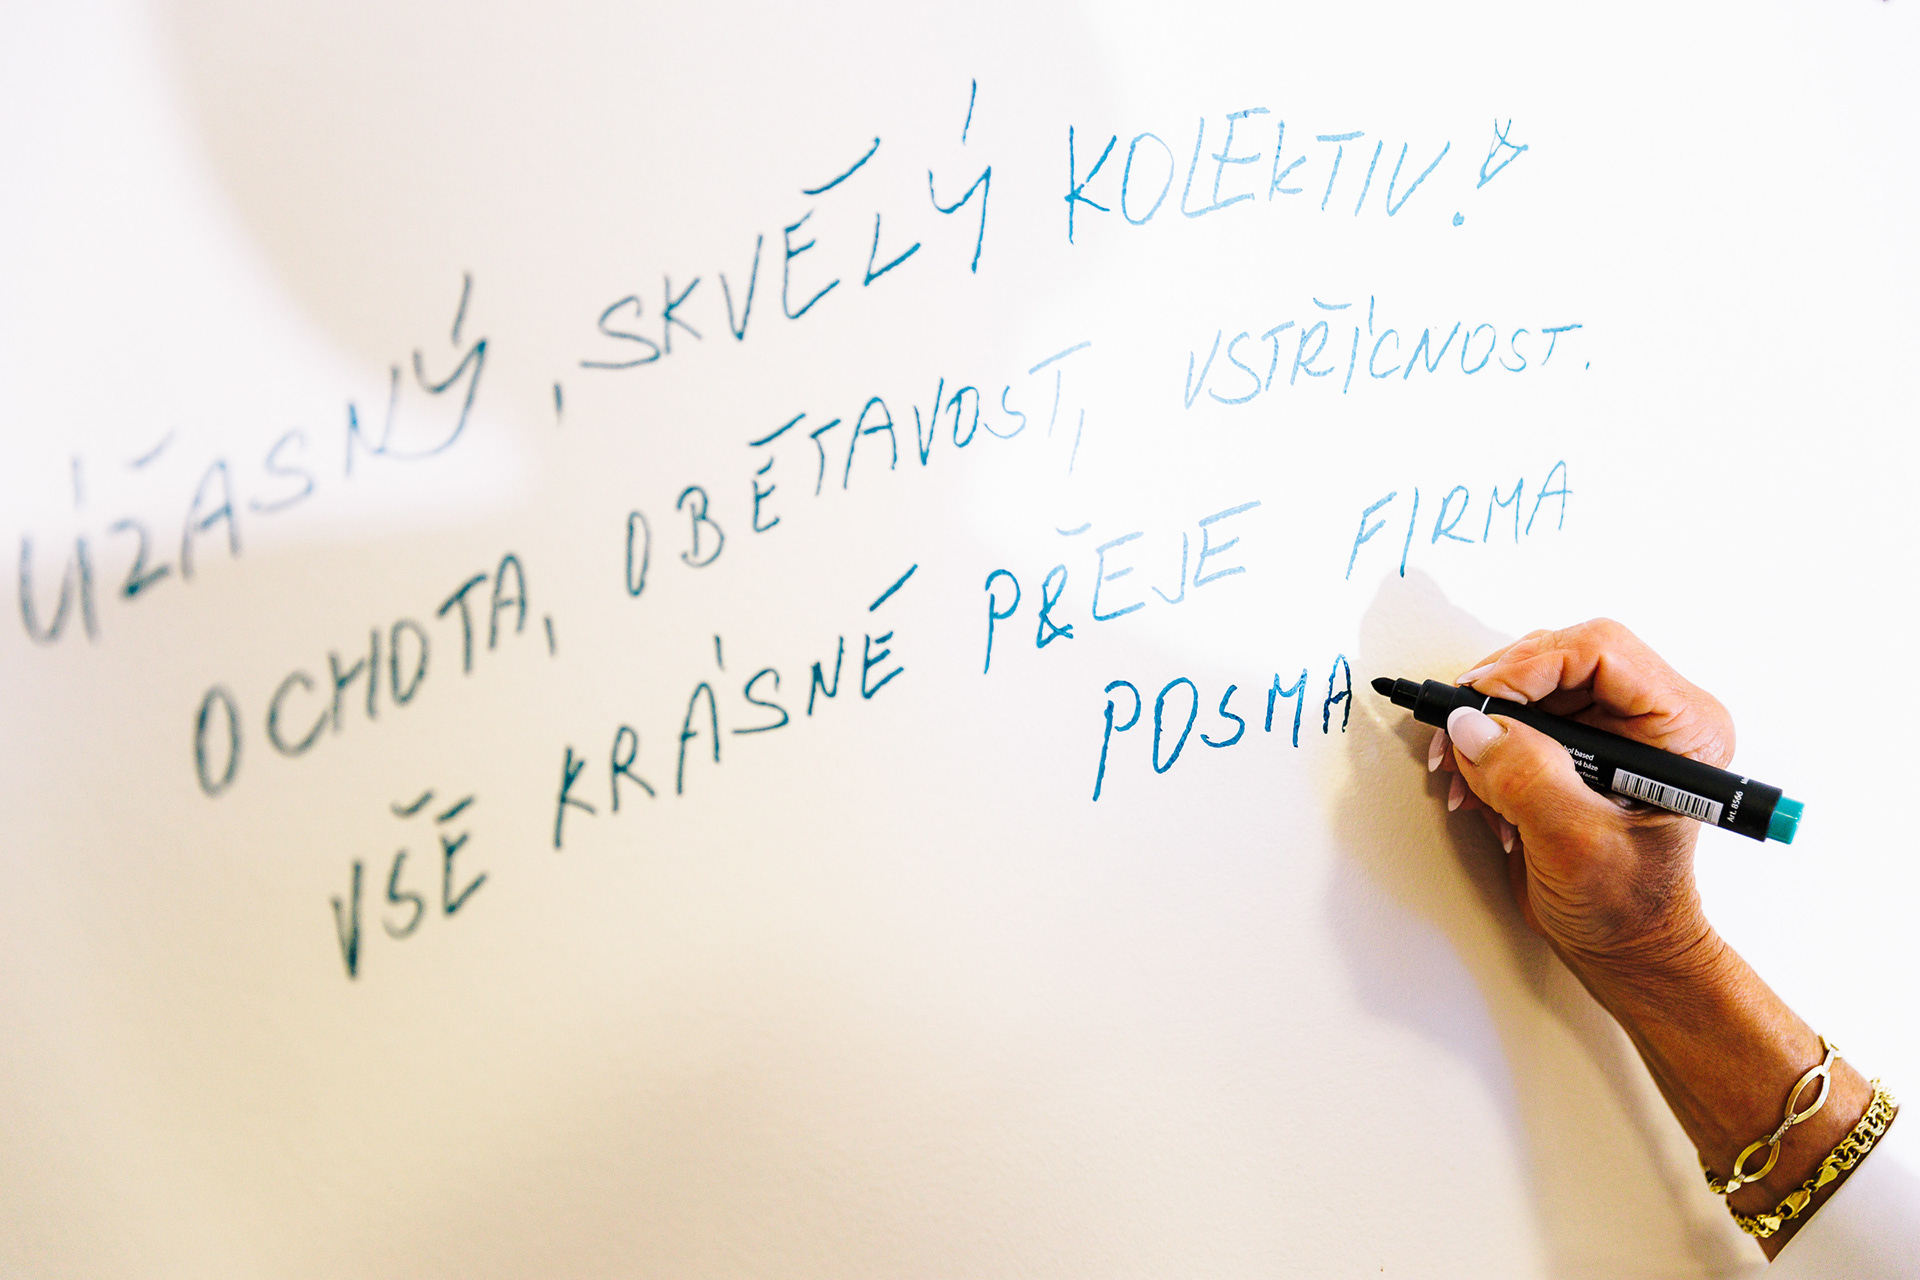 ÚŽASNÝ, SKVĚLÝ KOLEKTIV!
OCHOTA, OBĚTAVOST, VSTŘÍCNOST.
VŠE KRÁSNÉ PŘEJE FIRMA
POSMA
Art. 8566